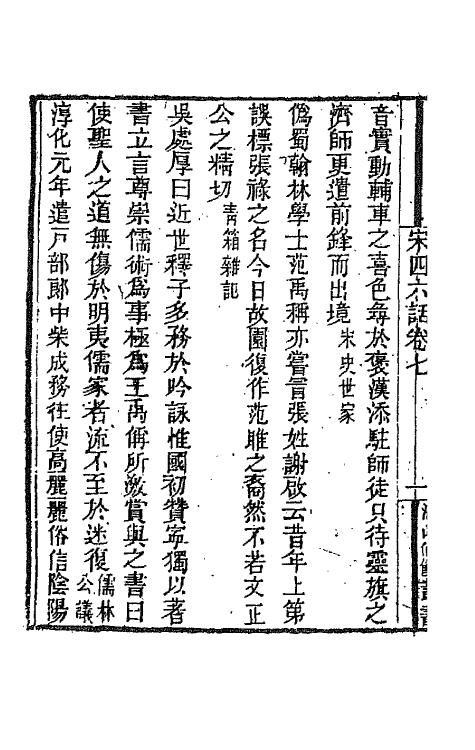 宋四六話卷七
音實動輔車之喜色尋於褒漢添駐師徒只待靈旗之
濟師更遣前鋒而出境宋史世家
僞蜀翰林學士范禹稱亦嘗冒張姓謝啟云昔年上第
誤標張祿之名今日故園復作范雎之裔然不若文正
公之精切青箱雜記
吳處厚曰近世釋子多務於吟詠惟國初贊寧獨以著
書立言尊崇儒術爲事極爲王禹偁所激賞與之書曰
使聖人之道無傷於明夷儒家者流不至於迷復儒林公議
淳化元年遣戸部郞中柴成務往使高麗麗俗信陰陽